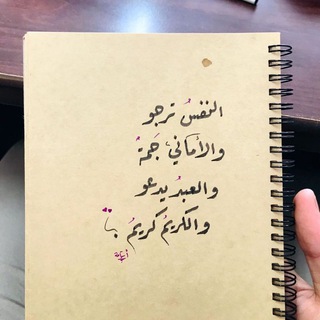 النفسُ ترجو
والأماني جَمةُ
والعبدُ يدعو
والكريمُ كريمُ